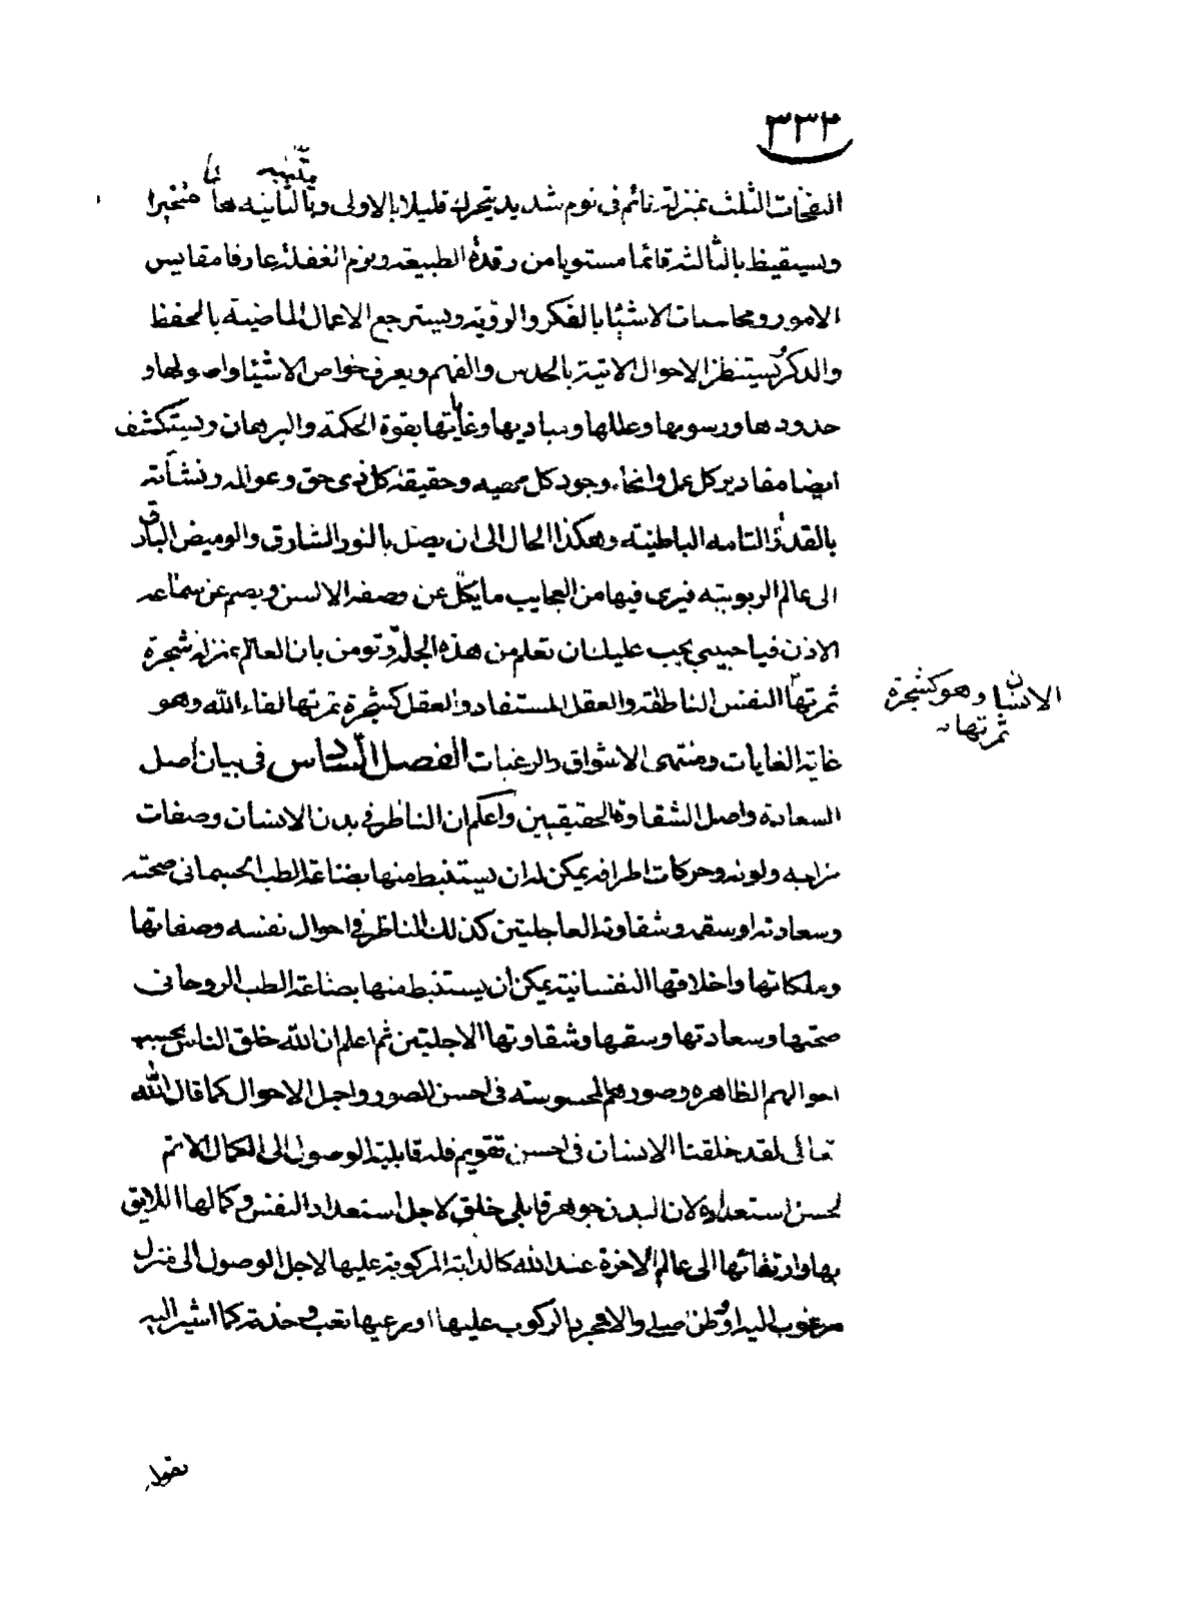 ٣٣٢
النفخات الثلث بمنزلة نائم فى نوم شديد يتحرك قليلا بالاولى وبالثانية ينتبه هائما متحيرا
ويستيقظ بالثالثة قائما مستويا من رقدة الطبيعة ونوم الغفلة عارفا مقاييس
الامور ومحاسبات الاشيا بالفكر والروية ويسترجع الاعمال الماضية بالحفظ
والذكر ويستنظر الاحوال الاتية بالحدس والفهم ويعرف خواص الاشيا واصولها و
حدودها ورسومها وعللها ومباديها وغاياتها بقوة الحكمة والبرهان ويستكشف
ايضا مقادير كل عمل وانحاء وجود كل معصيه وحقيقة كل ذى حق وعوالم ونشأته
بالقدرة التامه الباطنية وهكذا الحال الى ان يصل بالنور الشارق والوميض البارق
الى عالم الربوبيه فيرى فيها من العجايب ما يكل عن وصفه الالسن ويصم عن سماعه
الاذن فيا حبيبى يجب عليك ان تعلم من هذه الجملة وتومن بان العالم بمنزلة شجرة
ثمرتها النفس الناطقة والعقل المستفاد والعقل كشجرة ثمرتها لقاء الله وهو
الانسان وهو كشجرة
ثمرتها
غاية الغايات ومنتهى الاشواق والرغبات الفصل السادس فى بيان اصل
السعادة واصل الشقاوة الحقيقيين واعلم ان الناظر فى بدن الانسان وصفات
مزاجه ولونه وحركات اطرافه يمكن له ان يستنبط منها بصناعة الطب الجسمانى صحته
وسعادته او سقمه وشقاوته العاجليتين كذلك الناظر فى احوال نفسه وصفاتها
وملكاتها واخلاقها النفسانية يمكن ان يستنبط منها بصناعة الطب الروحانى
صحتها وسعادتها وسقمها وشقاوتها الاجليتين ثم اعلم ان الله خلق الناس بحسب
احوالهم الظاهره وصورهم المحسوسة فى احسن الصور واجمل الاحوال كما قال الله
تعالى لقد خلقنا الانسان فى احسن تقويم فله قابلية الوصول الى الكمال الاتم
لحسن استعداده لان البدن جوهر قابلى خلق لاجل استعداد النفس وكمالها اللايق
بها وارتقائها الى عالم الاخرة عند الله كالدابة المركوبة عليها لاجل الوصول الى منزل
مرغوب اليه او وطن اصلى والا فمجرد الركوب عليها او رعيها تعب فى خدمة كما اشير اليه
بقوله